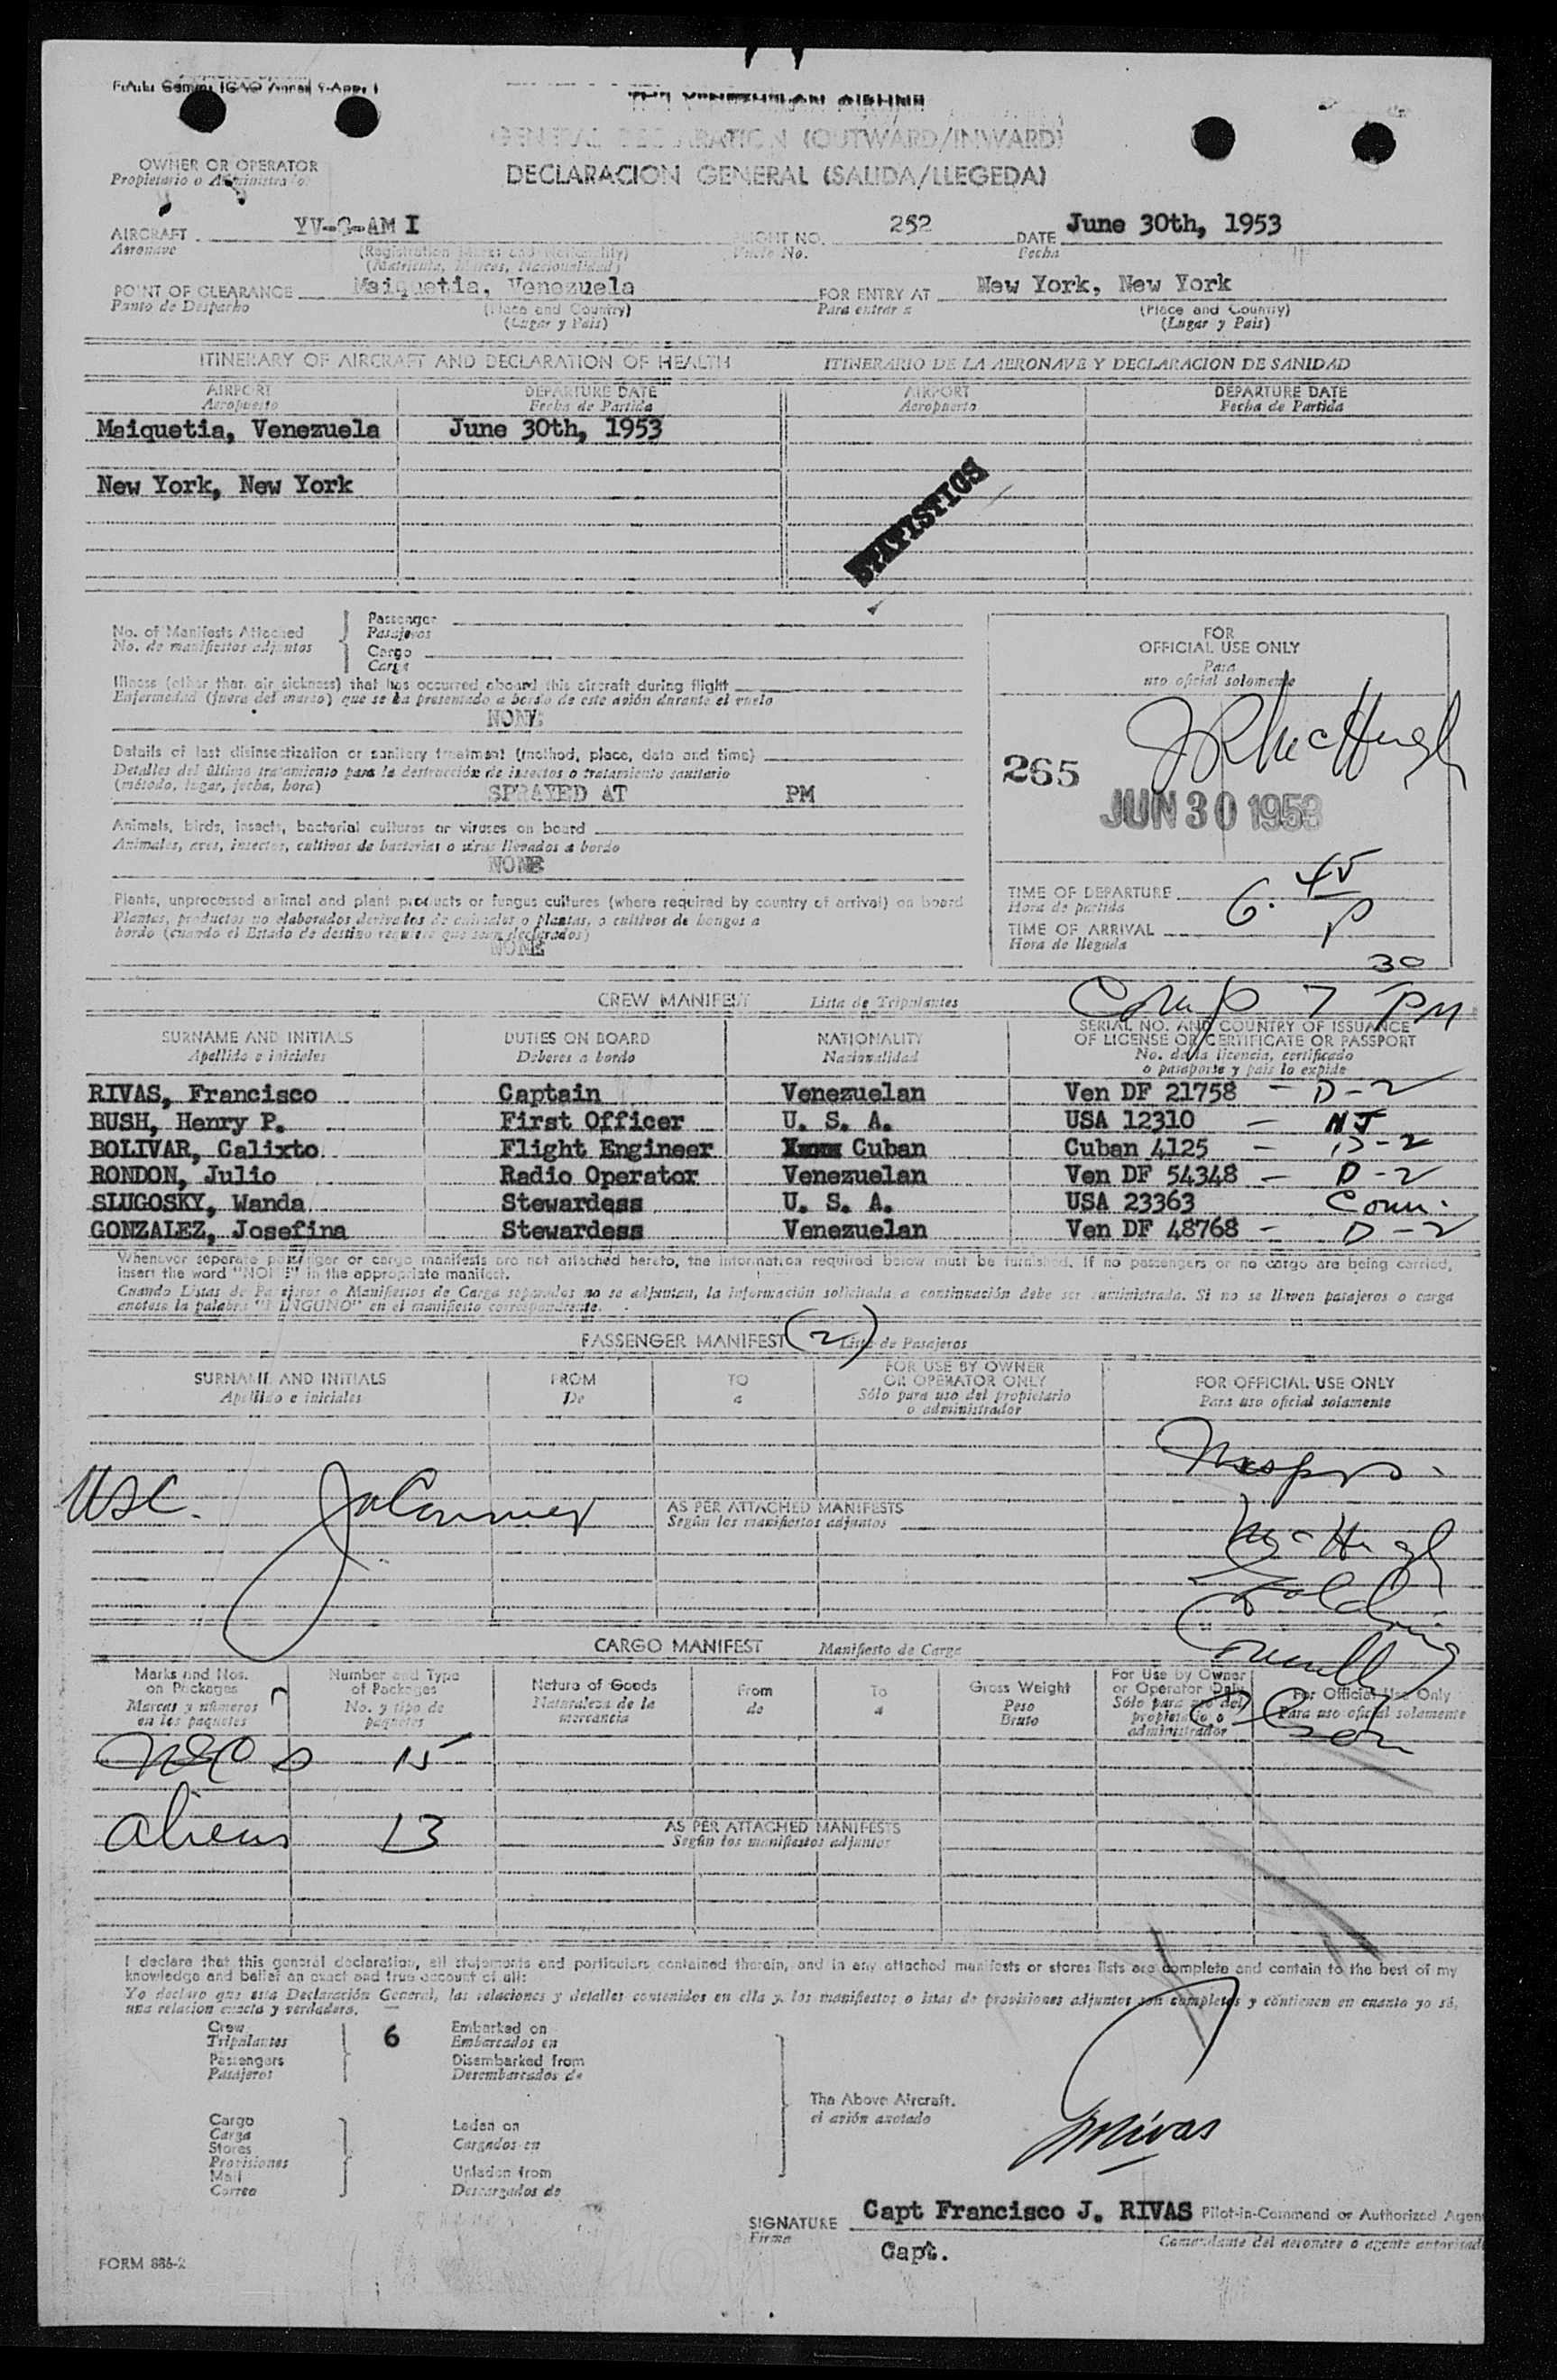 THE VENEZUELAN AIRLINE
GENERAL DECLARATION (OUTWARD/INWARD)
DECLARACION GENERAL (SALIDA/LLEGEDA)
OWNER OR OPERATOR
Propietario o Administrador
AIRCRAFT YV-C-AM I FLIGHT NO. 252 DATE June 30th, 1953
Aeronave (Registration Marks and Nationality) Vuelo No. Fecha
(Matricula, Marcas, Nacionalidad)
POINT OF CLEARANCE Maiquetia, Venezuela FOR ENTRY AT New York, New York
Punto de Despacho (Place and Country) Para entrar a (Place and Country)
(Lugar y Pais) (Lugar y Pais)
ITINERARY OF AIRCRAFT AND DECLARATION OF HEALTH ITINERARIO DE LA AERONAVE Y DECLARACION DE SANIDAD
AIRPORT DEPARTURE DATE AIRPORT DEPARTURE DATE
Aeropuerto Fecha de Partida Aeropuerto Fecha de Partida
Maiquetia, Venezuela June 30th, 1953
New York, New York
STATISTICS
No. of Manifests Attached Passenger
No. de manifiestos adjuntos Pasajeros
Cargo
Carga
Illness (other than air sickness) that has occurred aboard this aircraft during flight
Enfermedad (fuera del mareo) que se ha presentado a bordo de este avión durante el vuelo
NONE
Details of last disinsectization or sanitary treatment (method, place, date and time)
Detalles del último tratamiento para la destrucción de insectos o tratamiento sanitario
(método, lugar, fecha, hora) SPRAYED AT PM
Animals, birds, insects, bacterial cultures or viruses on board
Animales, aves, insectos, cultivos de bacterias o virus llevados a bordo
NONE
Plants, unprocessed animal and plant products or fungus cultures (where required by country of arrival) on board
Plantas, productos no elaborados derivados de animales o plantas, o cultivos de hongos a
bordo (cuando el Estado de destino requiere que sean declarados)
NONE
FOR
OFFICIAL USE ONLY
Para
uso oficial solamente
JR McHugh
265
JUN 30 1953
TIME OF DEPARTURE
Hora de partida
6.45 P
TIME OF ARRIVAL
Hora de llegada
Comp 7 30 PM
CREW MANIFEST Lista de Tripulantes
SURNAME AND INITIALS DUTIES ON BOARD NATIONALITY SERIAL NO. AND COUNTRY OF ISSUANCE
Apellido e iniciales Deberes a bordo Nacionalidad OF LICENSE OR CERTIFICATE OR PASSPORT
No. de la licencia, certificado
o pasaporte y pais lo expide
RIVAS, Francisco Captain Venezuelan Ven DF 21758 - D-2
BUSH, Henry P. First Officer U. S. A. USA 12310 - NJ
BOLIVAR, Calixto Flight Engineer Cuban Cuban 4125 - D-2
RONDON, Julio Radio Operator Venezuelan Ven DF 54348 - D-2
SLUGOSKY, Wanda Stewardess U. S. A. USA 23363 Conn.
GONZALEZ, Josefina Stewardess Venezuelan Ven DF 48768 - D-2
Whenever separate passenger or cargo manifests are not attached hereto, the information required below must be furnished. If no passengers or no cargo are being carried,
insert the word "NONE" in the appropriate manifest.
Cuando Listas de Pasajeros o Manifiestos de Carga separados no se adjuntan, la información solicitada a continuación debe ser suministrada. Si no se llevan pasajeros o carga
anotese la palabra "NINGUNO" en el manifiesto correspondiente.
PASSENGER MANIFEST (2) Lista de Pasajeros
SURNAME AND INITIALS FROM TO FOR USE BY OWNER FOR OFFICIAL USE ONLY
Apellido e iniciales De a OR OPERATOR ONLY Para uso oficial solamente
Sólo para uso del propietario
o administrador
Insprs.
USC.
AS PER ATTACHED MANIFESTS
Según los manifiestos adjuntos
McHugh
CARGO MANIFEST Manifiesto de Carga
Marks and Nos. Number and Type Nature of Goods From To Gross Weight For Use by Owner For Official Use Only
on Packages of Packages Naturaleza de la de a Peso or Operator Only Para uso oficial solamente
Marcas y números No. y tipo de mercancia Bruto Sólo para uso del
en los paquetes paquetes propietario o
administrador
USC s 15
aliens 13
AS PER ATTACHED MANIFESTS
Según los manifiestos adjuntos
I declare that this general declaration, all statements and particulars contained therein, and in any attached manifests or stores lists are complete and contain to the best of my
knowledge and belief an exact and true account of all:
Yo declaro que esta Declaración General, las relaciones y detalles contenidos en ella y los manifiestos o listas de provisiones adjuntos son completos y contienen en cuanto yo sé,
una relacion exacta y verdadera.
Crew 6 Embarked on
Tripulantes Embarcados en
Passengers Disembarked from
Pasajeros Desembarcados de
The Above Aircraft.
el avión anotado
Cargo Laden on
Carga Cargados en
Stores
Provisiones
Mail Unladen from
Correo Descargados de
Rivas
SIGNATURE Capt Francisco J. RIVAS Pilot-in-Command or Authorized Agent
Firma Comandante del aeronave o agente autorizado
Capt.
FORM 886-2